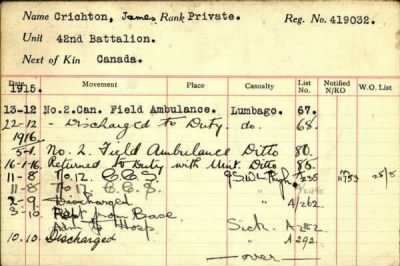 Name Crichton, James Rank Private. Reg. No. 419032.
Unit 42nd Battalion.
Next of Kin Canada.
Date Movement Place Casualty List No. Notified N/KO W.O. List
1915.
13-12 No.2.Can. Field Ambulance. Lumbago. 67.
22-12 - Discharged to Duty. do. 68.
1916.
5-1 No. 2. Field Ambulance Ditto 80.
16-1-16 Returned to Duty with Unit. Ditto 85.
11-8 To 12. C.C.S. GSW L Thigh 235
11-8 To 12. C.C.S.
2-9 Discharged A262
3-10 Rept from Base Sick. A282
Hosp
10.10. Discharged A292.
—over—